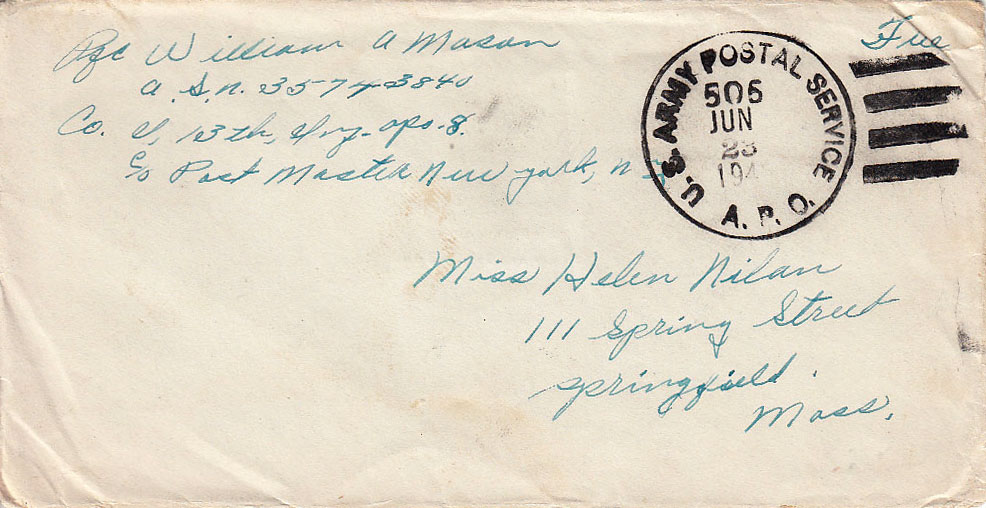 Pfc William A Mason
A.S.N. 35743840
Co. I, 13th, Inf- apo-8.
c/o Post Master New york, N.Y.
Free
U.S. ARMY POSTAL SERVICE
505
JUN
23
194
A.P.O.
Miss Helen Nilan
111 Spring Street
springfield.
Mass.